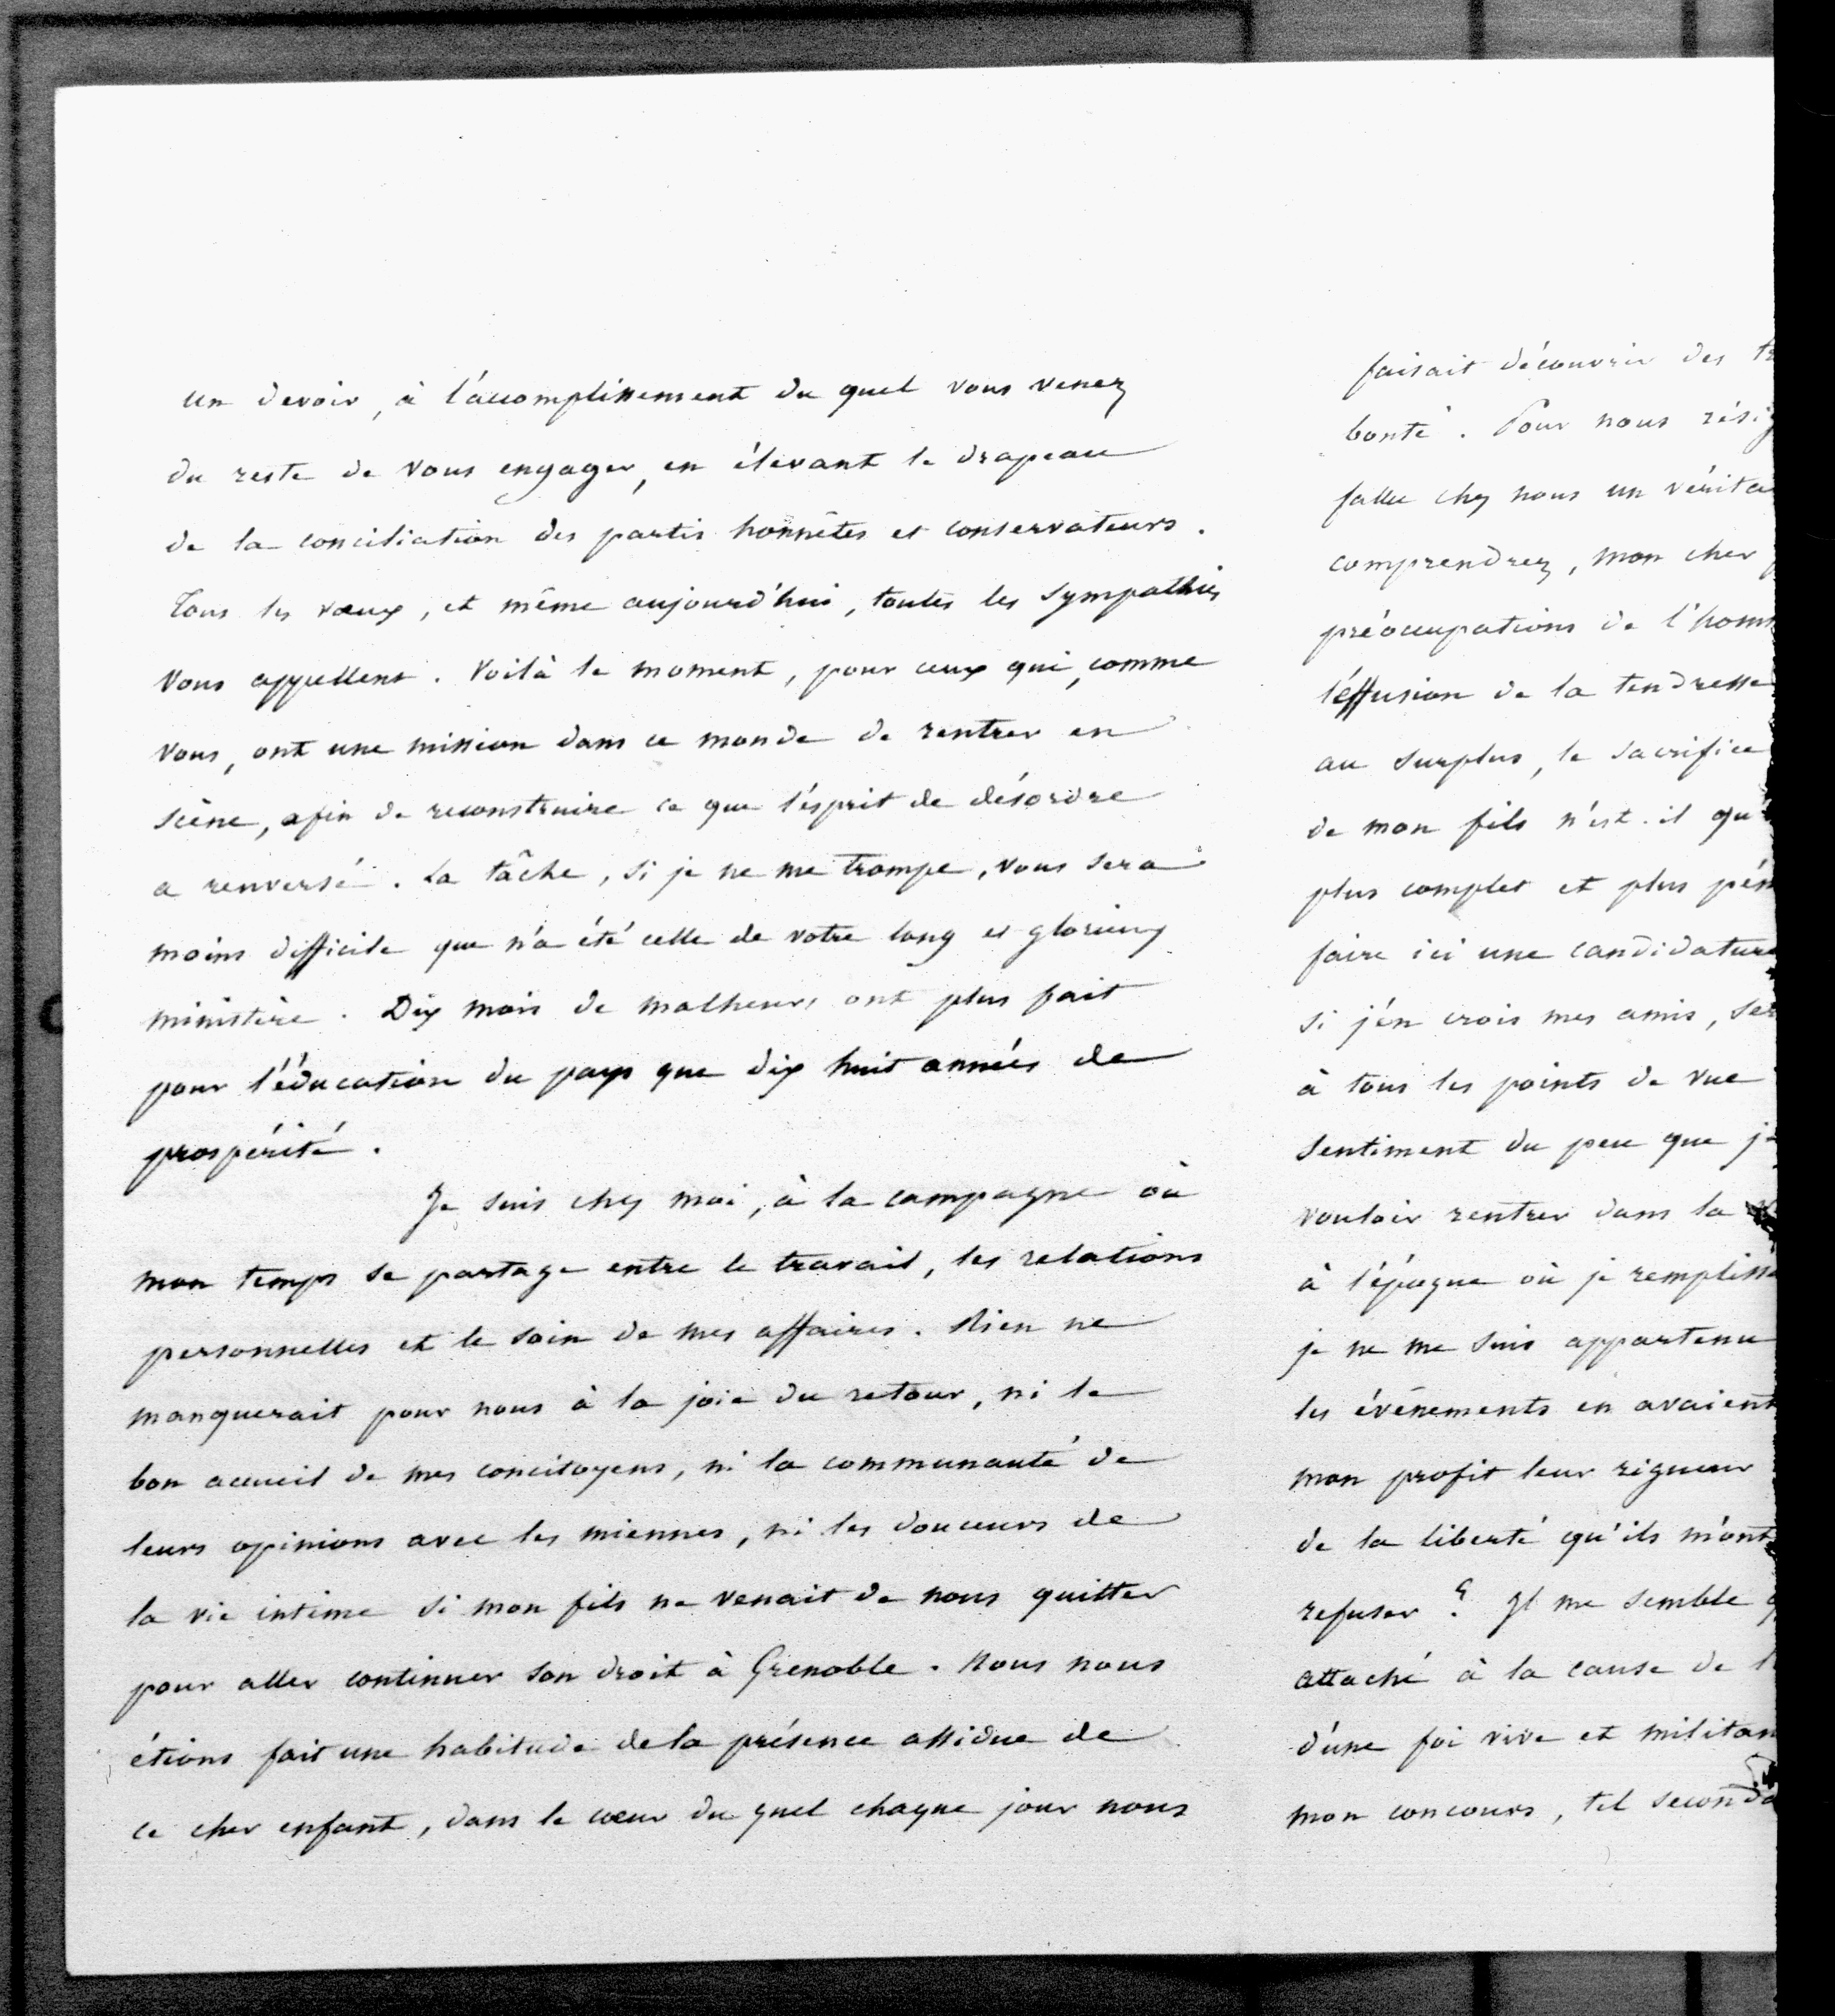 un devoir, à l'accomplissement du quel vous venez
du reste de vous engager, en élevant le drapeau
de la conciliation des partis honnêtes et conservateurs.
Tous les vœux, et même aujourd'hui, toutes les sympathies
vous appellent. Voilà le moment, pour ceux qui, comme
vous, ont une mission dans ce monde de rentrer en
scène, afin de reconstruire ce que l'esprit de désordre
a renversé. La tâche, si je ne me trompe, vous sera
moins difficile que n'a été celle de votre long et glorieux
ministère. Dix mois de malheurs ont plus fait
pour l'éducation du pays que dix huit années de
prospérité.
Je suis chez moi, à la campagne où
mon temps se partage entre le travail, les relations
personnelles et le soin de mes affaires. Rien ne
manquerait pour nous à la joie du retour, ni le
bon accueil de mes concitoyens, ni la communauté de
leurs opinions avec les miennes, ni les douceurs de
la vie intime si mon fils ne venait de nous quitter
pour aller continuer son droit à Grenoble. Nous nous
étions fait une habitude de la présence assidue de
ce cher enfant, dans le cœur du quel chaque jour nous
faisait découvrir des
bonté. Pour nous
fallu chez nous un
comprendrez, mon cher
préoccupations de
l'effusion de la tendresse
au surplus, le sacrifice
de mon fils n'est-il
plus complet et plus
faire ici une candidature
si j'en crois mes amis,
à tous les points de vue
sentiment du peu que
vouloir rentrer dans la
à l'époque où je
je ne me suis appartenu
les événements en avaient
mon profit leur rigueur
de la liberté qu'ils m'ont
refuser ? Il me semble
attaché à la cause de
d'une foi vive et
mon concours, tel